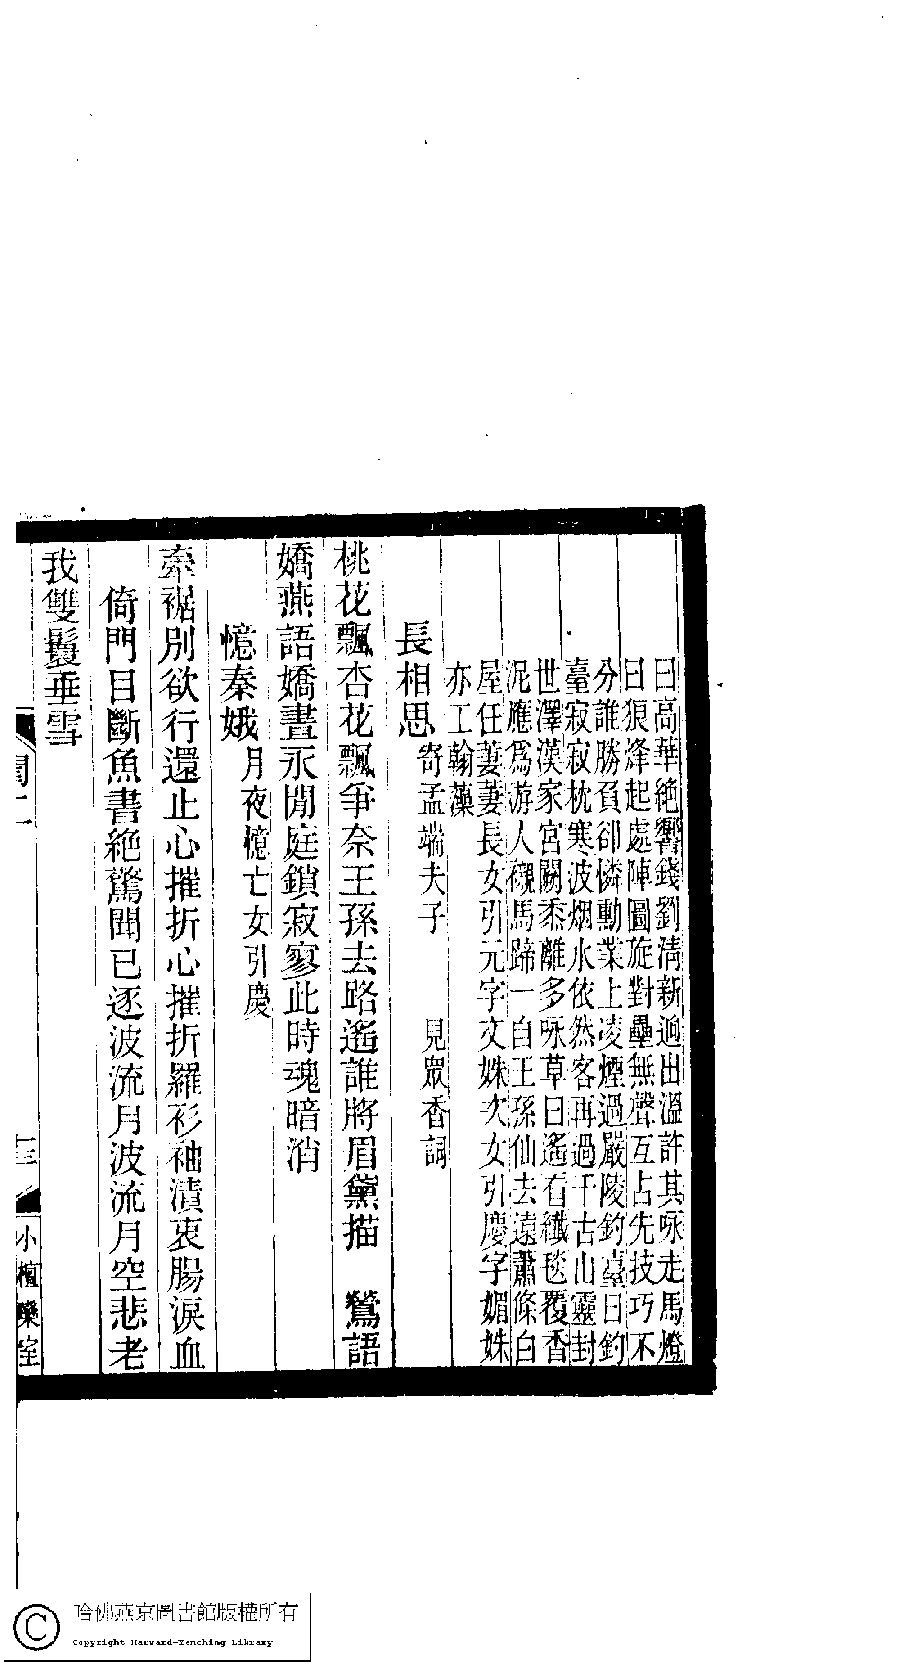 曰高華絶響錢劉淸新逈出溫許其咏走馬燈
曰狼烽起處陣圖旋對壘無聲互占先技巧不
分誰勝負卻憐勳業上凌煙過嚴陵釣臺曰釣
臺寂寂枕寒波烟水依然客再過千古山靈封
世澤漢家宮闕黍離多咏草曰遙看纖毯覆香
泥應爲游人襯馬蹄一自王孫仙去遠蕭條白
屋任萋萋長女引元字文姝次女引慶字媚姝
亦工翰藻
長相思寄孟端夫子 見眾香詞
桃花飄杏花飄爭奈王孫去路遙誰將眉黛描 鶯語
嬌燕語嬌晝永閒庭鎖寂寥此時魂暗消
憶秦娥月夜憶亡女引慶
牽裾別欲行還止心摧折心摧折羅衫袖漬衷腸淚血
倚門目斷魚書絶驚聞已逐波流月波流月空悲老
我雙鬢垂雪
閏二
三
小檀欒室
哈佛燕京圖書館版權所有
Copyright Harvard-Yenching Library